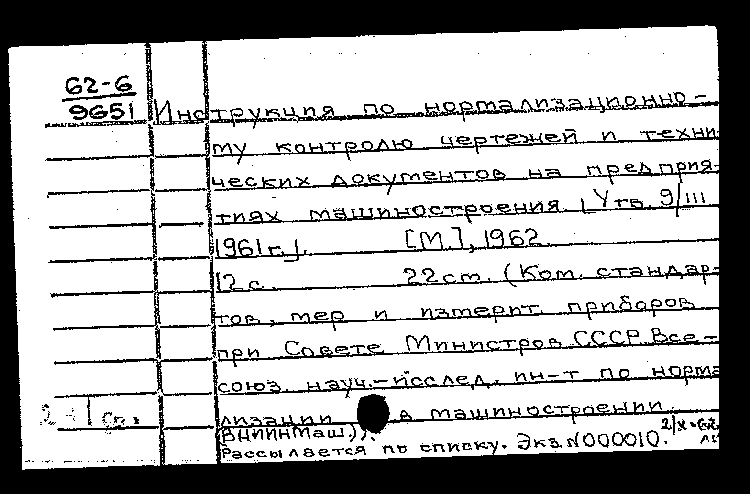 62-6
9651
Инструкция по нормализационно-
му контролю чертежей и техни
ческих документов на предприя-
тиях машиностроения. [Утв. 9/III
1961 г.]. [М.], 1962.
12 с. 22 см. (Ком. стандар-
тов, мер и измерит. приборов
при Совете Министров СССР. Все-
союз. науч.-исслед. ин-т по норма
лизации в машиностроении
(ВНИИНМаш.)).
Рассылается по списку. Экз. N000010.